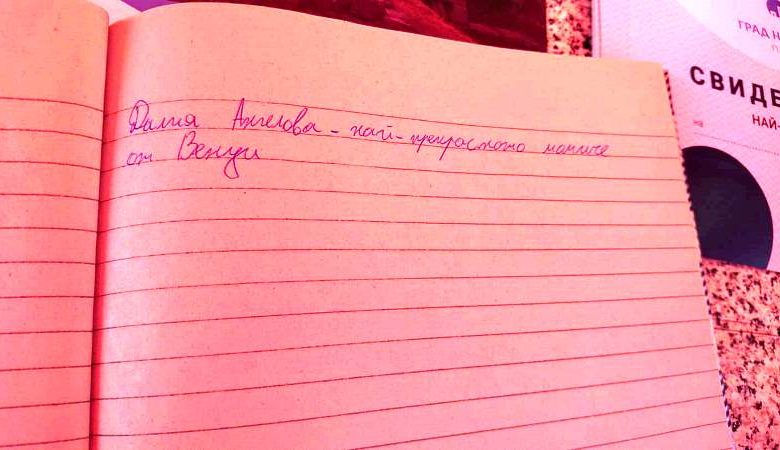 Далия Ангелова - най-прекрасното момиче
от Венци
ГРАД Н
СВИДЕ
НАЙ-
на